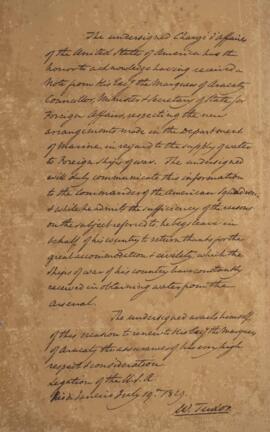 The undersigned Chargé d'affaires
of the United States of America has the
honor to acknowledge having received a
Note from His Excy the Marquess of Aracaty
Councillor, Minister & Secretary of State for
Foreign Affairs, respecting the new
arrangements made in the Department
of Marine, in regard to the supply of water
to Foreign ships of war. The undersigned
will duly communicate this information
to the Commanders of the American Squadron,
& while he admits the sufficiency of the reasons
on the subject referred to he begs leave in
behalf of his country to return thanks for the
great accommodation & civility, which the
ships of war of his country have constantly
received in obtaining water from the
arsenal.
The undersigned avails himself
of this occasion to renew to His Excy the Marquess
of Aracaty the assurances of his very high
respect & consideration
Legation of the U.S.A
Rio de Janeiro July 19th 1829.
W. Tudor